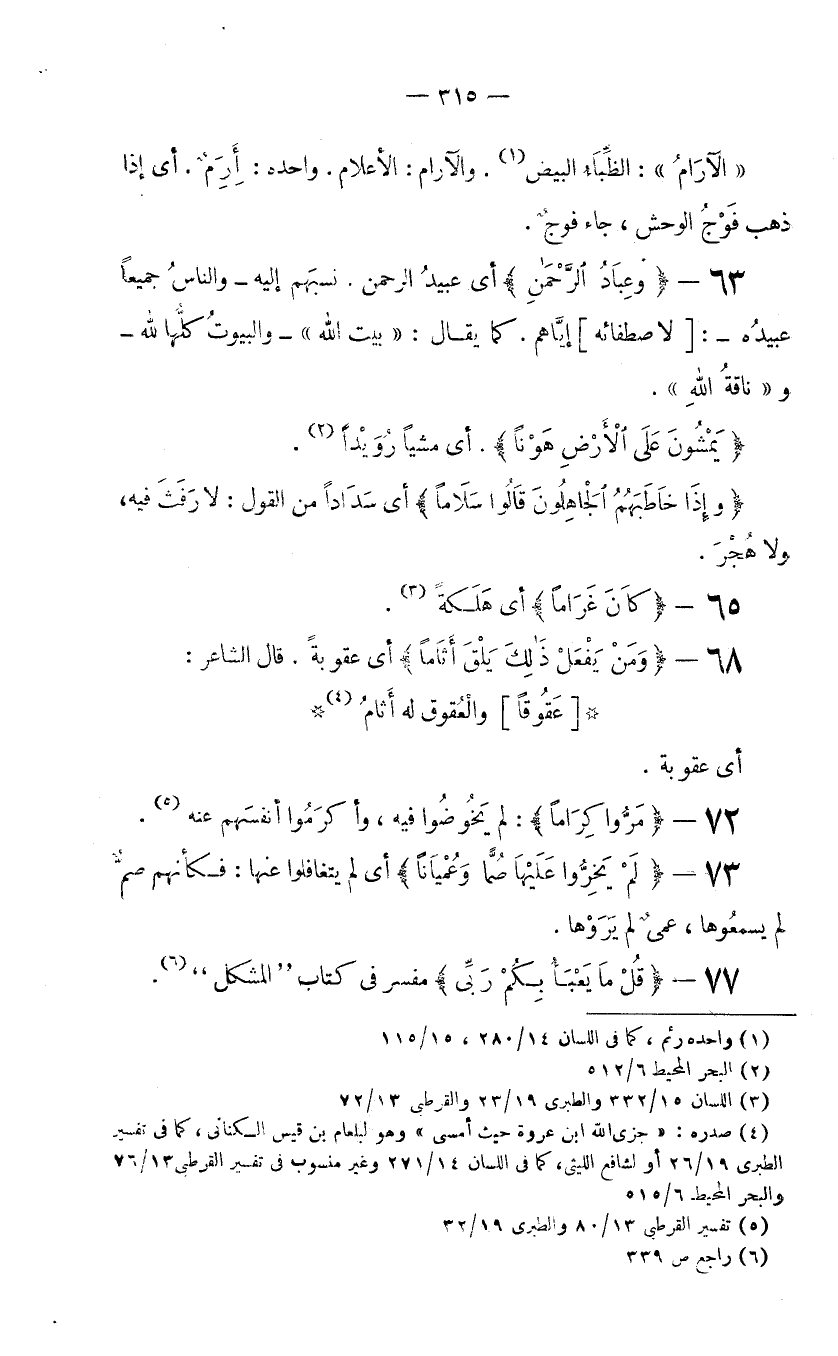 — ٣١٥ —
« الآرَامُ » : الظِّبَاء البيض(١) . والآرام : الأعلام . واحده : أَرِمٌ . أى إذا
ذهب فَوْجُ الوحش ، جاء فوجٌ .
٦٣ — ﴿ وَعِبَادُ ٱلرَّحْمَٰنِ ﴾ أى عبيدُ الرحمن . نسبَهم إليه ــ والناسُ جميعاً
عبيدُه ــ : [ لاصطفائه ] إيَّاهم . كما يقـال : « بيت الله » ــ والبيوتُ كلُّها لله ــ
و « ناقةُ اللهِ » .
﴿ يَمْشُونَ عَلَى ٱلْأَرْضِ هَوْناً ﴾ . أى مشياً رُوَيْداً (٢) .
﴿ و إِذَا خَاطَبَهُمُ ٱلْجَاهِلُونَ قَالُوا سَلَاماً ﴾ أى سَدَاداً من القول : لا رَفَثَ فيه،
ولا هُجْرَ .
٦٥ — ﴿ كَانَ غَرَاماً ﴾ أى هَلَـكةً (٣) .
٦٨ — ﴿ وَمَنْ يَفْعَلْ ذَٰلِكَ يَلْقَ أَثَاماً ﴾ أى عقوبةً . قال الشاعر :
* [ عَقُوقاً ] والْعُقوق له أَثامُ (٤) *
أى عقوبة .
٧٢ — ﴿ مَرُّوا كِرَاماً ﴾ : لم يَخُوضُوا فيه ، وأكرَمُوا أنفسَهم عنه (٥) .
٧٣ — ﴿ لَمْ يَخِرُّوا عَلَيْهَا صُمًّا وَعُمْيَاناً ﴾ أى لم يتغافلوا عنها : فـكأنهم صمٌّ
لم يسمعُوها ، عمىٌ لم يَرَوْها .
٧٧ — ﴿ قُلْ مَا يَعْبَـأُ بِـكُمْ رَبِّى ﴾ مفسر فى كتاب ”المشكل“ (٦).
(١) واحده رئم ، كما فى اللسان ١٤/٢٨٠ ، ١٥/١١٥
(٢) البحر المحيط ٦/٥١٢
(٣) اللسان ١٥/٣٣٢ والطبرى ١٩/٢٣ والقرطبى ١٣/٧٢
(٤) صدره : « جزى الله ابن عروة حيث أمسى » وهو لبلعام بن قيس الـكنانى ، كما فى تفسير
الطبرى ١٩/٢٦ أو لشافع الليثى، كما فى اللسان ١٤/٢٧١ وغير منسوب فى تفسير القرطبى١٣/٧٦
والبحر المحيط ٦/٥١٥
(٥) تفسير القرطبى ١٣/٨٠ والطبرى ١٩/٣٢
(٦) راجع ص ٣٣٩